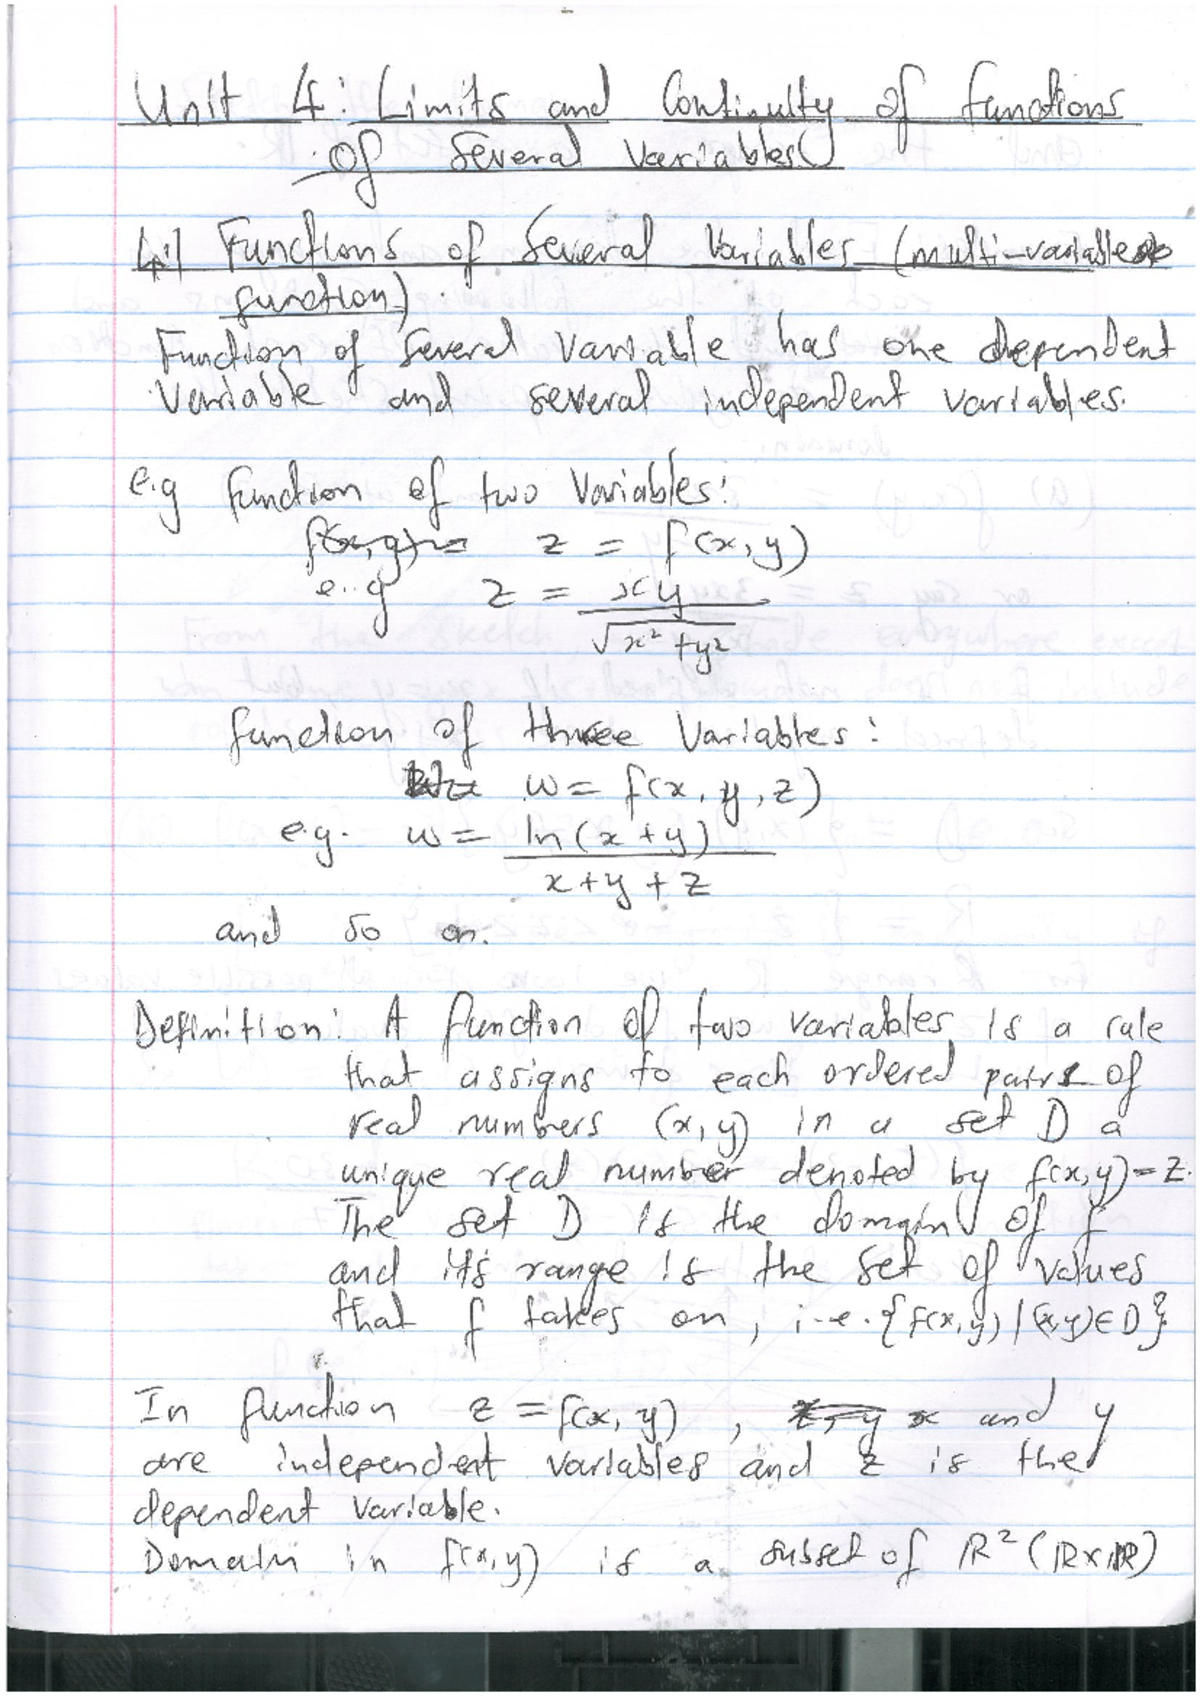 Unit 4: Limits and Continuity of functions
of Several Variables
4.1 Functions of Several Variables (multi-variable
function)
Function of several Variable has one dependent
Variable and several independent variables.
e.g function of two Variables:
z = f(x, y)
e.g z = xy / √x² + y²
function of three Variables:
w = f(x, y, z)
e.g. w = ln(x + y) / x + y + z
and so on.
Definition: A function of two variables is a rule
that assigns to each ordered pairs of
real numbers (x, y) in a set D a
unique real number denoted by f(x,y) = z.
The set D is the domain of f
and its range is the set of values
that f takes on, i.e. {f(x,y) | (x,y) ∈ D}
In function z = f(x, y), x and y
are independent variables and z is the
dependent variable.
Domain in f(x,y) is a subset of ℝ² (ℝ x ℝ)